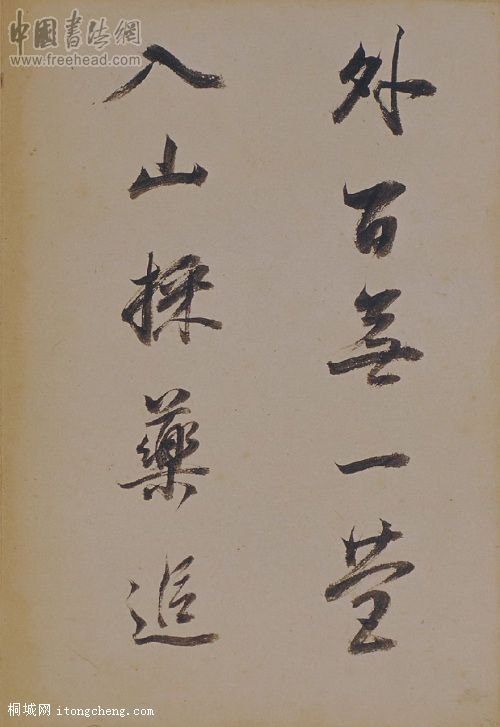 中國書法網
www.freehead.com
外百無一營
入山採藥追
桐城网 itongcheng.com